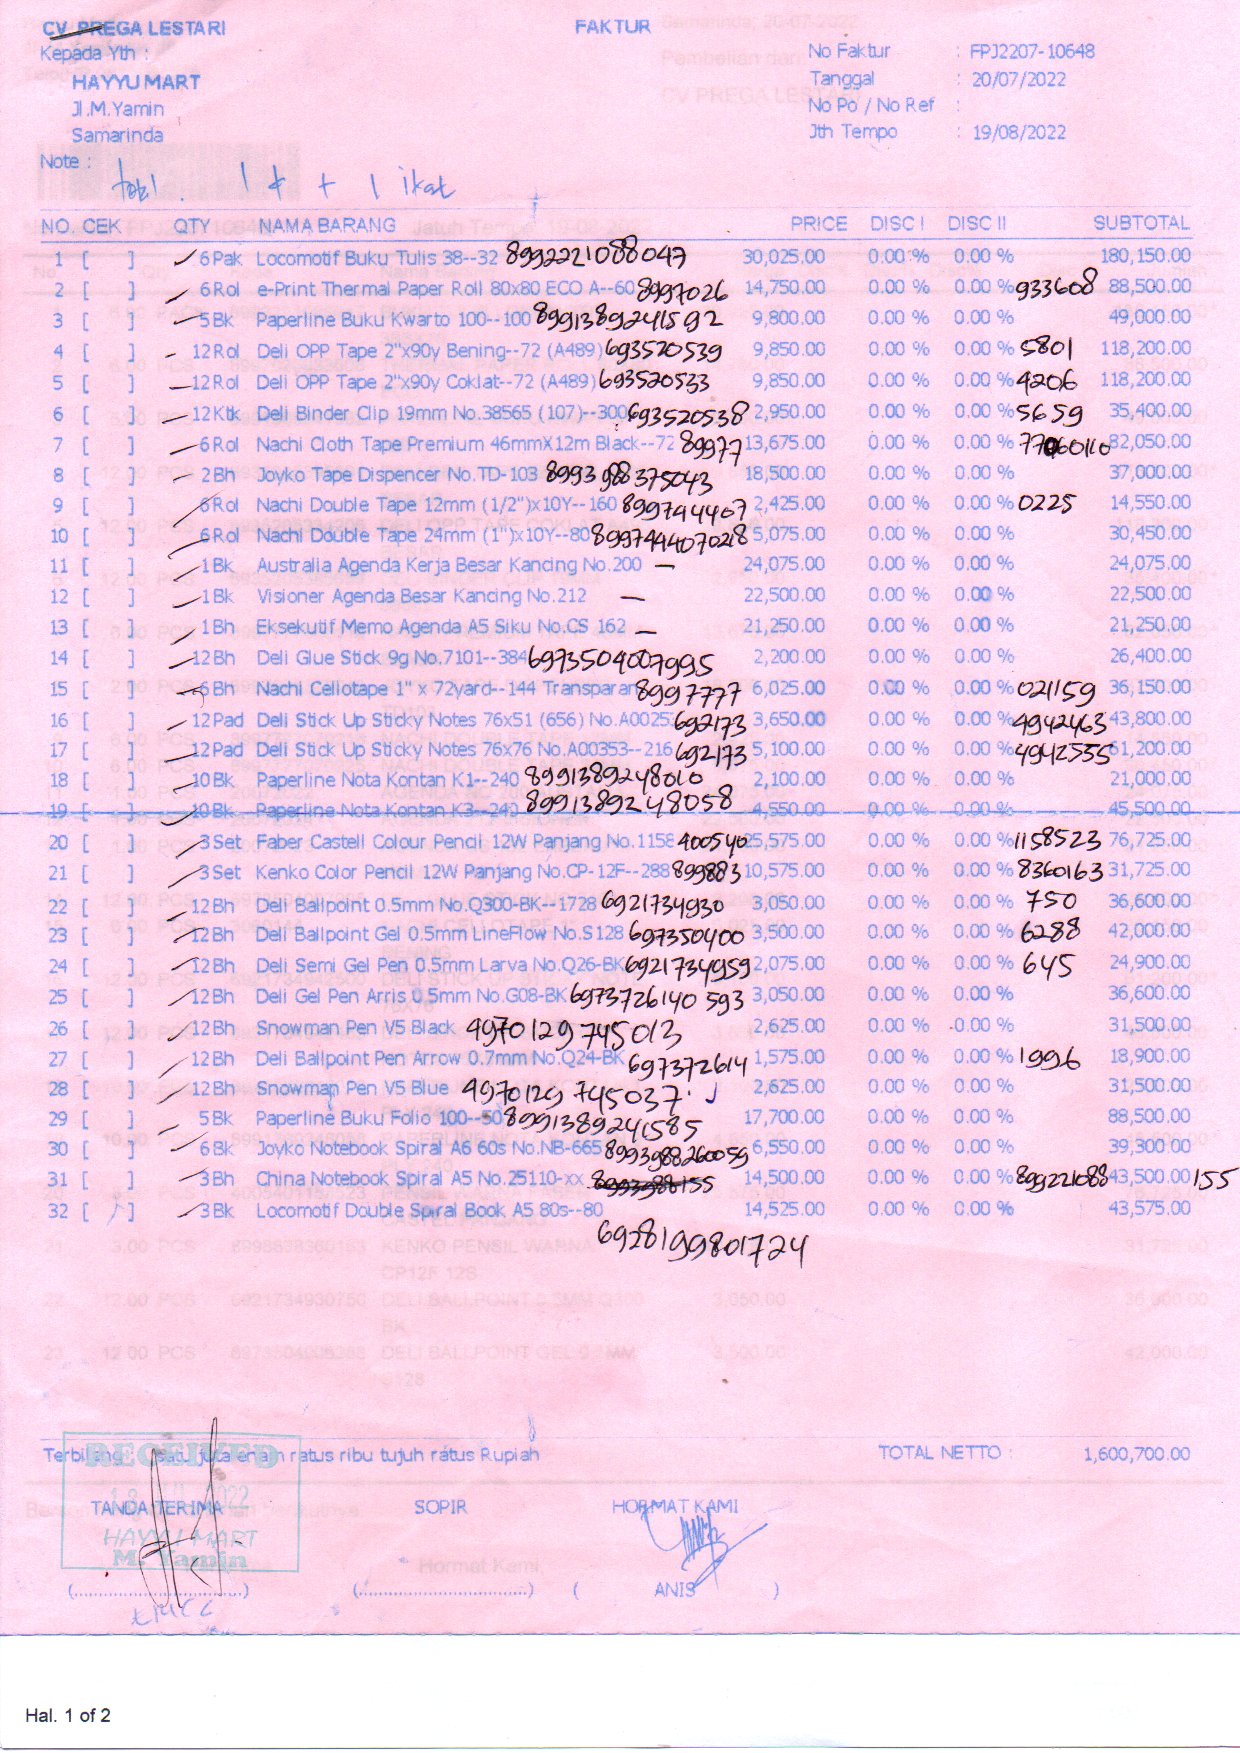 CV. PREGA LESTARI
FAKTUR
Kepada Yth :
HAYYU MART
Jl.M.Yamin
Samarinda
No Faktur : FPJ2207-10648
Tanggal : 20/07/2022
No Po / No Ref :
Jth Tempo : 19/08/2022
Note :
1 + 1 ikat
NO. CEK QTY NAMA BARANG PRICE DISC I DISC II SUBTOTAL
1 [ ] 6 Pak Locomotif Buku Tulis 38--32 8992221088047 30,025.00 0.00 % 0.00 % 180,150.00
2 [ ] 6 Rol e-Print Thermal Paper Roll 80x80 ECO A--60 8997026 14,750.00 0.00 % 0.00 % 933608 88,500.00
3 [ ] 5 Bk Paperline Buku Kwarto 100--100 8991389241592 9,800.00 0.00 % 0.00 % 49,000.00
4 [ ] 12 Rol Deli OPP Tape 2"x90y Bening--72 (A489) 693520539 9,850.00 0.00 % 0.00 % 5801 118,200.00
5 [ ] 12 Rol Deli OPP Tape 2"x90y Coklat--72 (A489) 693520533 9,850.00 0.00 % 0.00 % 4206 118,200.00
6 [ ] 12 Ktk Deli Binder Clip 19mm No.38565 (107)--300 693520538 2,950.00 0.00 % 0.00 % 5659 35,400.00
7 [ ] 6 Rol Nachi Cloth Tape Premium 46mmX12m Black--72 89977 13,675.00 0.00 % 0.00 % 82,050.00
8 [ ] 2 Bh Joyko Tape Dispencer No.TD-103 8993988375043 18,500.00 0.00 % 0.00 % 37,000.00
9 [ ] 6 Rol Nachi Double Tape 12mm (1/2")x10Y--160 899744407 2,425.00 0.00 % 0.00 % 0225 14,550.00
10 [ ] 6 Rol Nachi Double Tape 24mm (1")x10Y--80 5,075.00 0.00 % 0.00 % 30,450.00
11 [ ] 1 Bk Australia Agenda Kerja Besar Kancing No.200 — 24,075.00 0.00 % 0.00 % 24,075.00
12 [ ] 1 Bk Visioner Agenda Besar Kancing No.212 — 22,500.00 0.00 % 0.00 % 22,500.00
13 [ ] 1 Bh Eksekutif Memo Agenda A5 Siku No.CS 162 — 21,250.00 0.00 % 0.00 % 21,250.00
14 [ ] 12 Bh Deli Glue Stick 9g No.7101--384 6973504007995 2,200.00 0.00 % 0.00 % 26,400.00
15 [ ] 6 Bh Nachi Cellotape 1" x 72yard--144 Transparan 8997777 6,025.00 0.00 % 0.00 % 021159 36,150.00
16 [ ] 12 Pad Deli Stick Up Sticky Notes 76x51 (656) No.A00253 692173 3,650.00 0.00 % 0.00 % 4942463 43,800.00
17 [ ] 12 Pad Deli Stick Up Sticky Notes 76x76 No.A00353--216 692173 5,100.00 0.00 % 0.00 % 4942555 61,200.00
18 [ ] 10 Bk Paperline Nota Kontan K1--240 8991389248010 2,100.00 0.00 % 0.00 % 21,000.00
19 [ ] 10 Bk Paperline Nota Kontan K3--240 8991389248058 4,550.00 0.00 % 0.00 % 45,500.00
20 [ ] 3 Set Faber Castell Colour Pencil 12W Panjang No.1158 400540 25,575.00 0.00 % 0.00 % 1158523 76,725.00
21 [ ] 3 Set Kenko Color Pencil 12W Panjang No.CP-12F--288 899883 10,575.00 0.00 % 0.00 % 8360163 31,725.00
22 [ ] 12 Bh Deli Ballpoint 0.5mm No.Q300-BK--1728 6921734930 3,050.00 0.00 % 0.00 % 750 36,600.00
23 [ ] 12 Bh Deli Ballpoint Gel 0.5mm LineFlow No.S128 697350400 3,500.00 0.00 % 0.00 % 6288 42,000.00
24 [ ] 12 Bh Deli Semi Gel Pen 0.5mm Larva No.Q26-BK 6921734959 2,075.00 0.00 % 0.00 % 645 24,900.00
25 [ ] 12 Bh Deli Gel Pen Arris 0.5mm No.G08-BK 6973726140593 3,050.00 0.00 % 0.00 % 36,600.00
26 [ ] 12 Bh Snowman Pen V5 Black 4970129745013 2,625.00 0.00 % 0.00 % 31,500.00
27 [ ] 12 Bh Deli Ballpoint Pen Arrow 0.7mm No.Q24-BK 697372614 1,575.00 0.00 % 0.00 % 1996 18,900.00
28 [ ] 12 Bh Snowman Pen V5 Blue 4970129745037 2,625.00 0.00 % 0.00 % 31,500.00
29 [ ] 5 Bk Paperline Buku Folio 100--50 8991389241585 17,700.00 0.00 % 0.00 % 88,500.00
30 [ ] 6 Bk Joyko Notebook Spiral A6 60s No.NB-665 8993988260059 6,550.00 0.00 % 0.00 % 39,300.00
31 [ ] 3 Bh China Notebook Spiral A5 No.25110-xx 14,500.00 0.00 % 0.00 % 899221088 43,500.00 155
32 [ ] 3 Bk Locomotif Double Spiral Book A5 80s--80 14,525.00 0.00 % 0.00 % 43,575.00
6928199801724
Terbilang satu juta enam ratus ribu tujuh ratus Rupiah TOTAL NETTO : 1,600,700.00
RECEIVED
2022
TANDA TERIMA SOPIR HORMAT KAMI
HAYYU MART
M. Yamin
(..............................) (..............................) ( ANIS )
Hal. 1 of 2